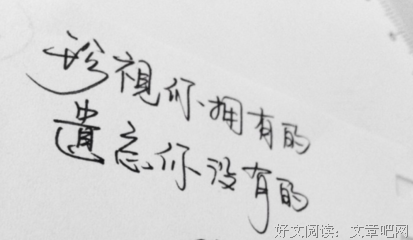 珍視你擁有的
遺忘你没有的
好文阅读：文章吧网